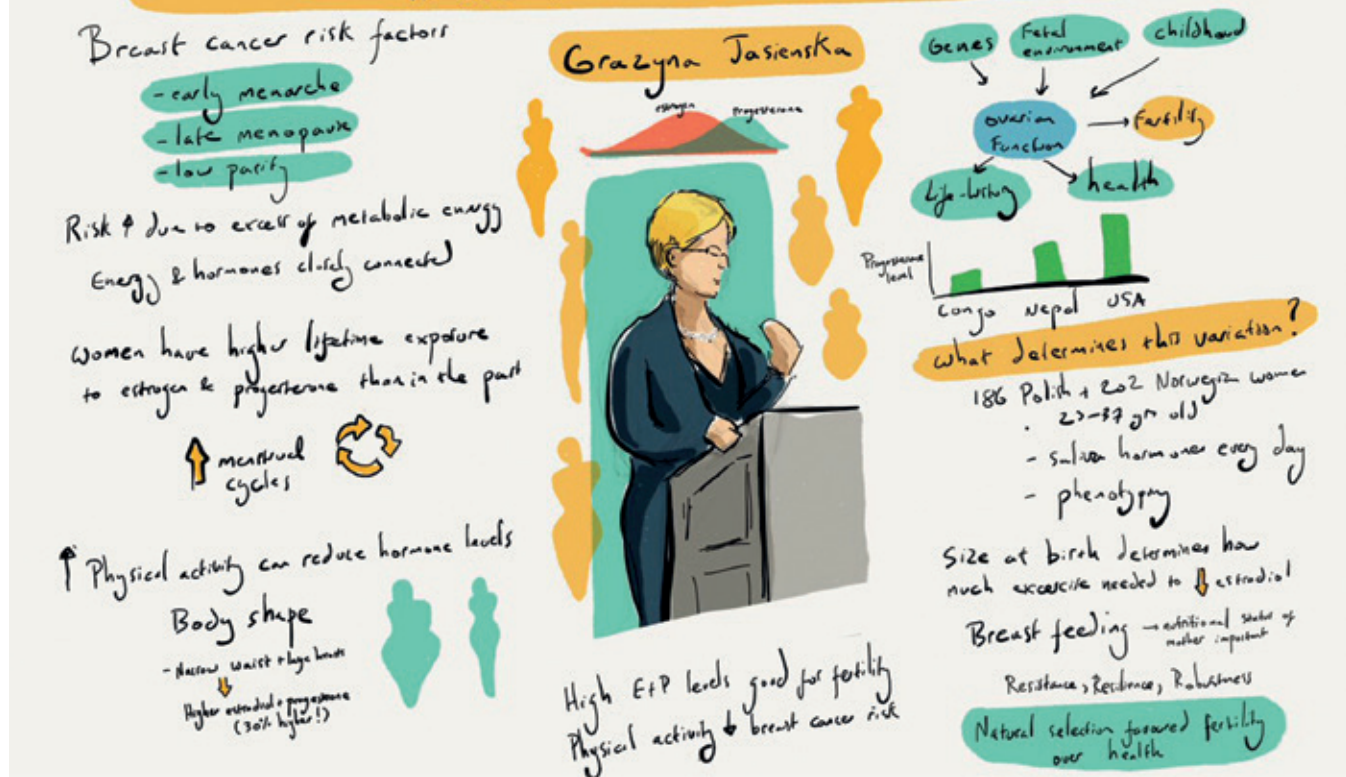 Breast cancer risk factors
- early menarche
- late menopause
- low parity
Risk ↑ due to excess of metabolic energy
Energy & hormones closely connected
Women have higher lifetime exposure
to estrogen & progesterone than in the past
↑ menstrual
cycles
↑ Physical activity can reduce hormone levels
Body shape
- Narrow waist + large breasts
↓
Higher estradiol + progesterone
(30% higher!)
Grazyna Jasienska
estrogen progesterone
High E+P levels good for fertility
Physical activity ↓ breast cancer risk
Genes
Fetal
environment
childhood
ovarian
Function
Fertility
Life-history
health
Progesterone
level
Congo Nepal USA
What determines this variation?
186 Polish + 202 Norwegian women
yrs old
- saliva hormones every day
- phenotyping
Size at birth determines how
much excercise needed to ↓ estradiol
Breast feeding → nutritional status of
mother important
Resistance, Resilience, Robustness
Natural selection favoured fertility
over health